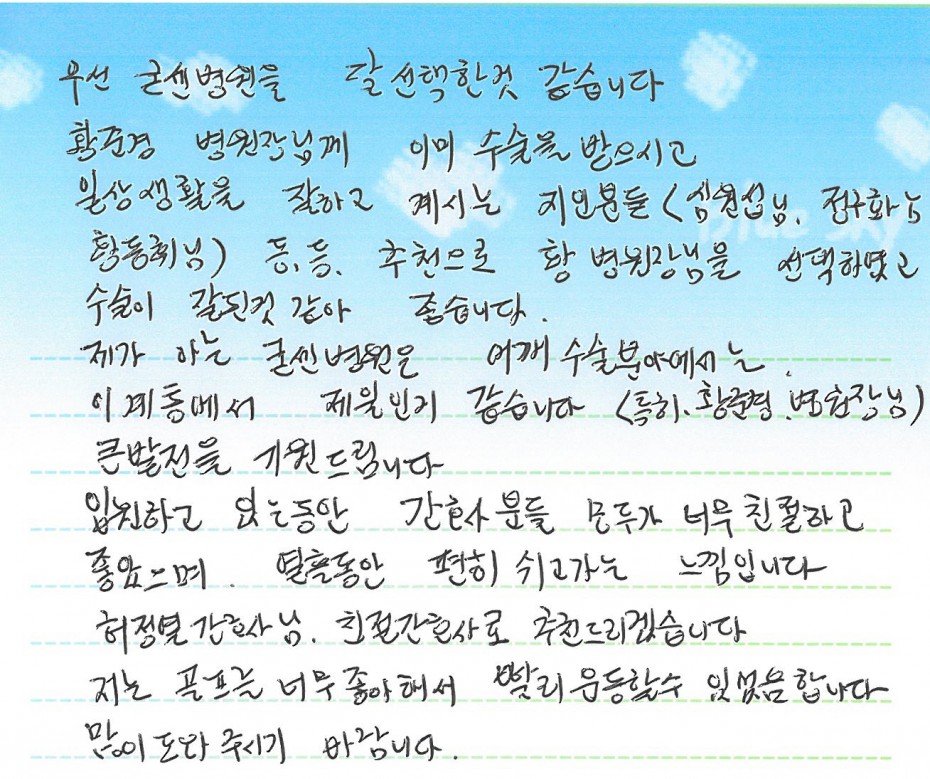 우선 굳센병원을 잘 선택한것 같습니다
황준경 병원장님께 이미 수술을 받으시고
일상생활을 잘하고 계시는 지인분들 (심원섭님, 정구화님
황동희님) 등.등. 추천으로 황 병원장님을 선택하였고
수술이 잘된것 같아 좋습니다.
제가 아는 굳센병원은 어깨 수술분야에서는.
이계통에서 제일인거 같습니다 (특히.황준경.병원장님)
큰발전을 기원드립니다
입원하고 있는동안 간호사분들 모두가 너무 친절하고
좋았으며. 열흘동안 편히 쉬고가는 느낌입니다
허정열간호사님. 친절간호사로 추천드리겠습니다
저는 골프를 너무좋아해서 빨리 운동할수 있었음합니다
많이 도와 주시기 바랍니다.
Blue Sky